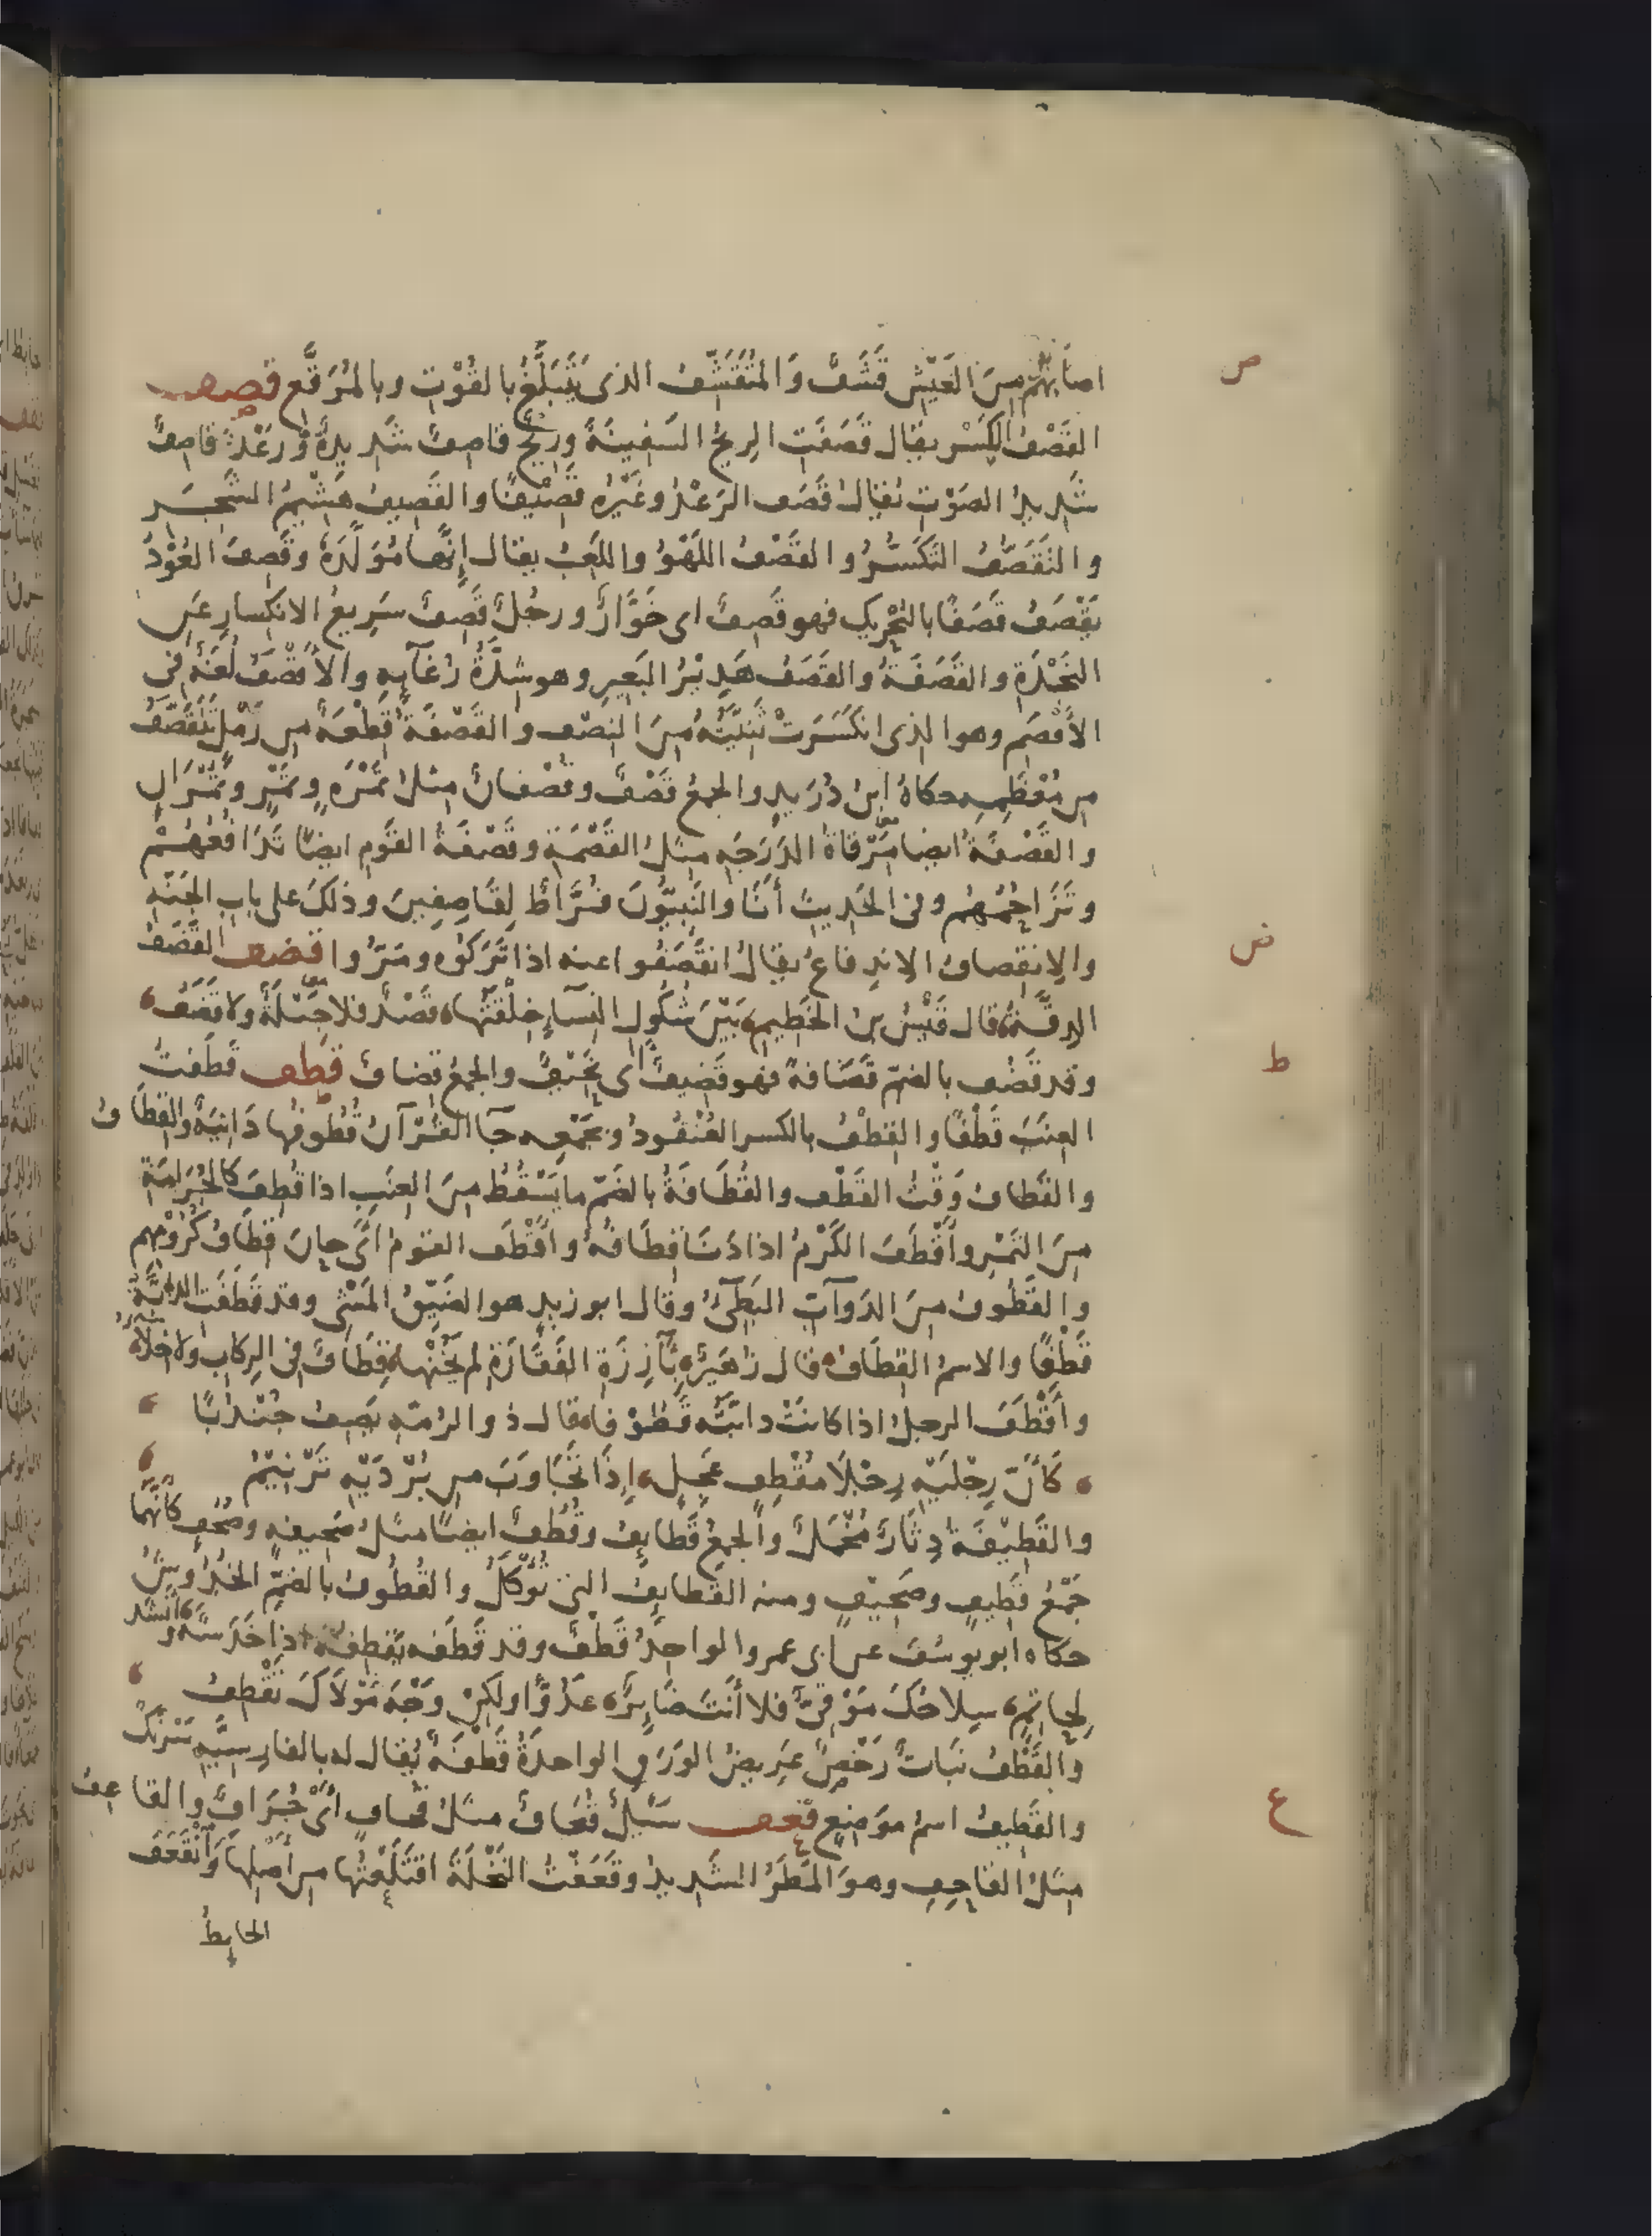 ص
اصابهم مِنَ العَيْشِ قَشَفٌ وَالمُتَقَشِّفُ الذى يَتَبَلَّغُ بالقُوْتِ وبالمُرَقَّعِ قصف
القَصْفُ الكَسْر يقال قَصَفَتِ الرِيحُ السَفِينَةَ وَرِيحٌ قاصِفٌ شَدِيدةٌ وَرَعْدٌ قاصِفٌ
شَدِيدُ الصَوْتِ يُقالُ قَصَفَ الرَعْدُ وغَيْرُه قَصِيْفًا والقَصِيفُ هَشِيْمُ الشَجَرِ
والتَقَصُّفُ التَكَسُّرُ والقَصْفُ اللَهْوُ واللَعِبُ يقال إنّها مُوَلَّدَةٌ وقَصِفَ العُوْدُ
يَقْصَفُ قَصَفًا بالتَحْرِيكِ فهو قَصِفٌ اى خَوَّارٌ ورجُلٌ قَصِفٌ سَرِيعُ الانكِسارِ عَنِ
النَجْدَةِ والقَصَفَةُ والقَصَفُ هَدِيْرُ البَعِيرِ وهو شِدَّةُ رُغَآيِهِ والأَقْصَفُ لُغَةٌ فى
الأَقْصَمِ وهو الذى انكَسَرَتْ ثَنِيَّتُهُ مِنَ النِصْفِ والقَصْفَةُ قِطْعَةٌ مِن رَمْلٍ تَتَقَصَّفُ
مِن مُعْظَمِهِ حكاهُ ابنُ دُرَيدٍ والجمعُ قَصْفٌ وقُصْفانٌ مِثلُ تَمْرَةٍ وتَمْرٍ وتُمْرَانٍ
والقَصْفَةُ ايضا مَرْقاةُ الدَرَجَةِ مِثلُ القَصْمَةِ وقَصْفَةُ القَومِ ايضًا تَدَافُعُهُمْ
وتَزَاحُمُهُم وفى الحَدِيثِ أَنَا والنَبِيُّونَ فُرَّاطٌ لِقَاصِفِينَ وذلكَ على بابِ الجَنّةِ
ض
والاِنقِصافُ الاندِفاعُ يقالُ انقَصَفُوا عنه اذا تَرَكُوْه ومَرُّوا قضف القَضَفُ
الدِقَّةُ قال قَيْسُ بنُ الخَطِيمِ بَيْنَ شُكُولِ النِسَآءِ خِلْقَتُها قَصْدٌ فلا جَبْلَةٌ ولا قَضَفُ
ط
وقد قَضُف بالضمّ قَضَافةً فهو قَضِيفٌ اى نَحِيْفٌ والجمعُ قِضافٌ قطف قَطَفْتُ
العِنَبَ قَطْفًا والقِطْفُ بالكسر العُنْقُودُ وبجَمْعِه جآ القُرْآنُ قُطُوفُها دَانِيَةٌ والقِطَافُ
والقَطَافُ وَقْتُ القَطْفِ والقُطَافَةُ بالضَمّ ما يَسْقُطُ مِنَ العِنَبِ اذا قُطِفَ كالجُرَامَةِ
مِنَ التَمْرِ وأَقْطَفَ الكَرْمُ اذا دَنَا قِطَافُهُ وأَقْطَف القَومُ أىْ حانَ قِطَافُ كُرُوْمِهِم
والقَطُوفُ مِنَ الدَوآبِّ البَطِىُ وقال ابو زيدٍ هو الضَيِّقُ المَشْىِ وقد قَطَفَتِ الدابَّةُ
قَطْفًا والاسمُ القِطَافُ قال زُهَيْرٌ بِآرِزَةِ الفَقَارَةِ لم يَخُنْها قِطَافٌ فى الرِكابِ ولا خِلَآءُ
وأَقْطَفَ الرجلُ اذا كانَتْ دابَّتُه قَطُوْفًا قال ذو الرُمّةِ يَصِفُ جُنْدُبًا
كَأَنّ رِجْلَيْهِ رِجْلَا مُقْطِفٍ عَجِلٍ إِذَا تَجَاوَبَ مِن بُرْدَيْهِ تَرْنِيْمُ
والقَطِيْفَةُ دِثَارٌ مُخْمَلٌ والجمعُ قَطَايِفُ وقُطُفٌ ايضًا مثلُ صَحِيفةٍ وصُحُفٍ كأنّهُما
جَمْعُ قَطِيفٍ وصَحِيْفٍ ومنه القَطايِفُ التى تُؤْكَلُ والقُطُوفُ بالضَمِّ الخُدُوشُ
حكاه ابو يُوسُفَ عن ابى عمرو الواحِدُ قَطْفٌ وقد قَطَفَه يَقْطِفُهُ اذا خَدَشَهُ وأَنشَد
لِحاتِمٍ سِلاحُكَ مَرْقِىٌّ فلا أَنتَ ضَايِرٌ عَدُوًّا ولكِنْ وَجْهَ مَوْلَاكَ تَقْطِفُ
والقَطْفُ نَباتٌ رَخْصٌ عَرِيضُ الوَرَقِ الواحدَةُ قَطْفَةٌ يُقال له بالفارِسِيَّةِ سَرْمَكْ
ع
والقَطِيفُ اسمُ مَوضِعٍ قعف سَيْلٌ قُعَافٌ مثلُ قُحافٍ أىْ جُرَافٌ والقاعِفُ
مثلُ القاحِفِ وهوَ المَطَرُ الشَدِيدُ وقَعَفْتُ النَخْلَةَ اقتَلَعْتُها مِن أَصْلِها وَانْقَعَفَ
الحايِطُ